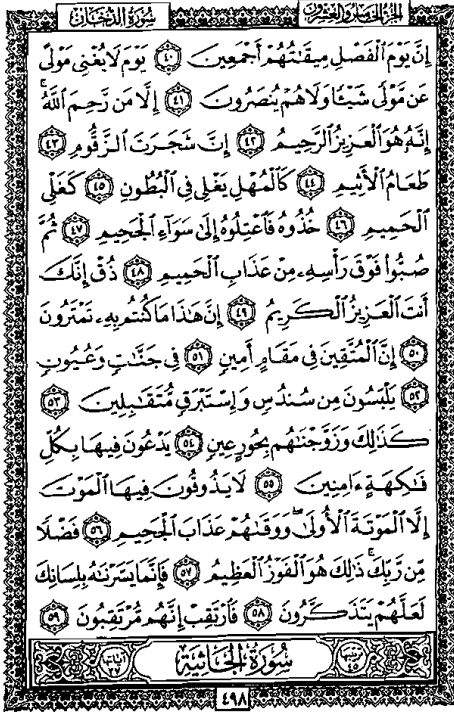 الجزء الخامس والعشرون سورة الدخان
إِنَّ يَوْمَ ٱلْفَصْلِ مِيقَٰتُهُمْ أَجْمَعِينَ ٤٠ يَوْمَ لَا يُغْنِى مَوْلًى
عَن مَّوْلًى شَيْـًٔا وَلَا هُمْ يُنصَرُونَ ٤١ إِلَّا مَن رَّحِمَ ٱللَّهُ ۚ
إِنَّهُۥ هُوَ ٱلْعَزِيزُ ٱلرَّحِيمُ ٤٢ إِنَّ شَجَرَتَ ٱلزَّقُّومِ ٤٣
طَعَامُ ٱلْأَثِيمِ ٤٤ كَٱلْمُهْلِ يَغْلِى فِى ٱلْبُطُونِ ٤٥ كَغَلْىِ
ٱلْحَمِيمِ ٤٦ خُذُوهُ فَٱعْتِلُوهُ إِلَىٰ سَوَآءِ ٱلْجَحِيمِ ٤٧ ثُمَّ
صُبُّوا۟ فَوْقَ رَأْسِهِۦ مِنْ عَذَابِ ٱلْحَمِيمِ ٤٨ ذُقْ إِنَّكَ
أَنتَ ٱلْعَزِيزُ ٱلْكَرِيمُ ٤٩ إِنَّ هَٰذَا مَا كُنتُم بِهِۦ تَمْتَرُونَ
٥٠ إِنَّ ٱلْمُتَّقِينَ فِى مَقَامٍ أَمِينٍ ٥١ فِى جَنَّٰتٍ وَعُيُونٍ
٥٢ يَلْبَسُونَ مِن سُندُسٍ وَإِسْتَبْرَقٍ مُّتَقَٰبِلِينَ ٥٣
كَذَٰلِكَ وَزَوَّجْنَٰهُم بِحُورٍ عِينٍ ٥٤ يَدْعُونَ فِيهَا بِكُلِّ
فَٰكِهَةٍ ءَامِنِينَ ٥٥ لَا يَذُوقُونَ فِيهَا ٱلْمَوْتَ
إِلَّا ٱلْمَوْتَةَ ٱلْأُولَىٰ ۖ وَوَقَىٰهُمْ عَذَابَ ٱلْجَحِيمِ ٥٦ فَضْلًا
مِّن رَّبِّكَ ۚ ذَٰلِكَ هُوَ ٱلْفَوْزُ ٱلْعَظِيمُ ٥٧ فَإِنَّمَا يَسَّرْنَٰهُ بِلِسَانِكَ
لَعَلَّهُمْ يَتَذَكَّرُونَ ٥٨ فَٱرْتَقِبْ إِنَّهُم مُّرْتَقِبُونَ ٥٩
ترتيبها ٤٥ سُورَةُ الجَاثِيَةِ آياتها ٣٧
٤٩٨